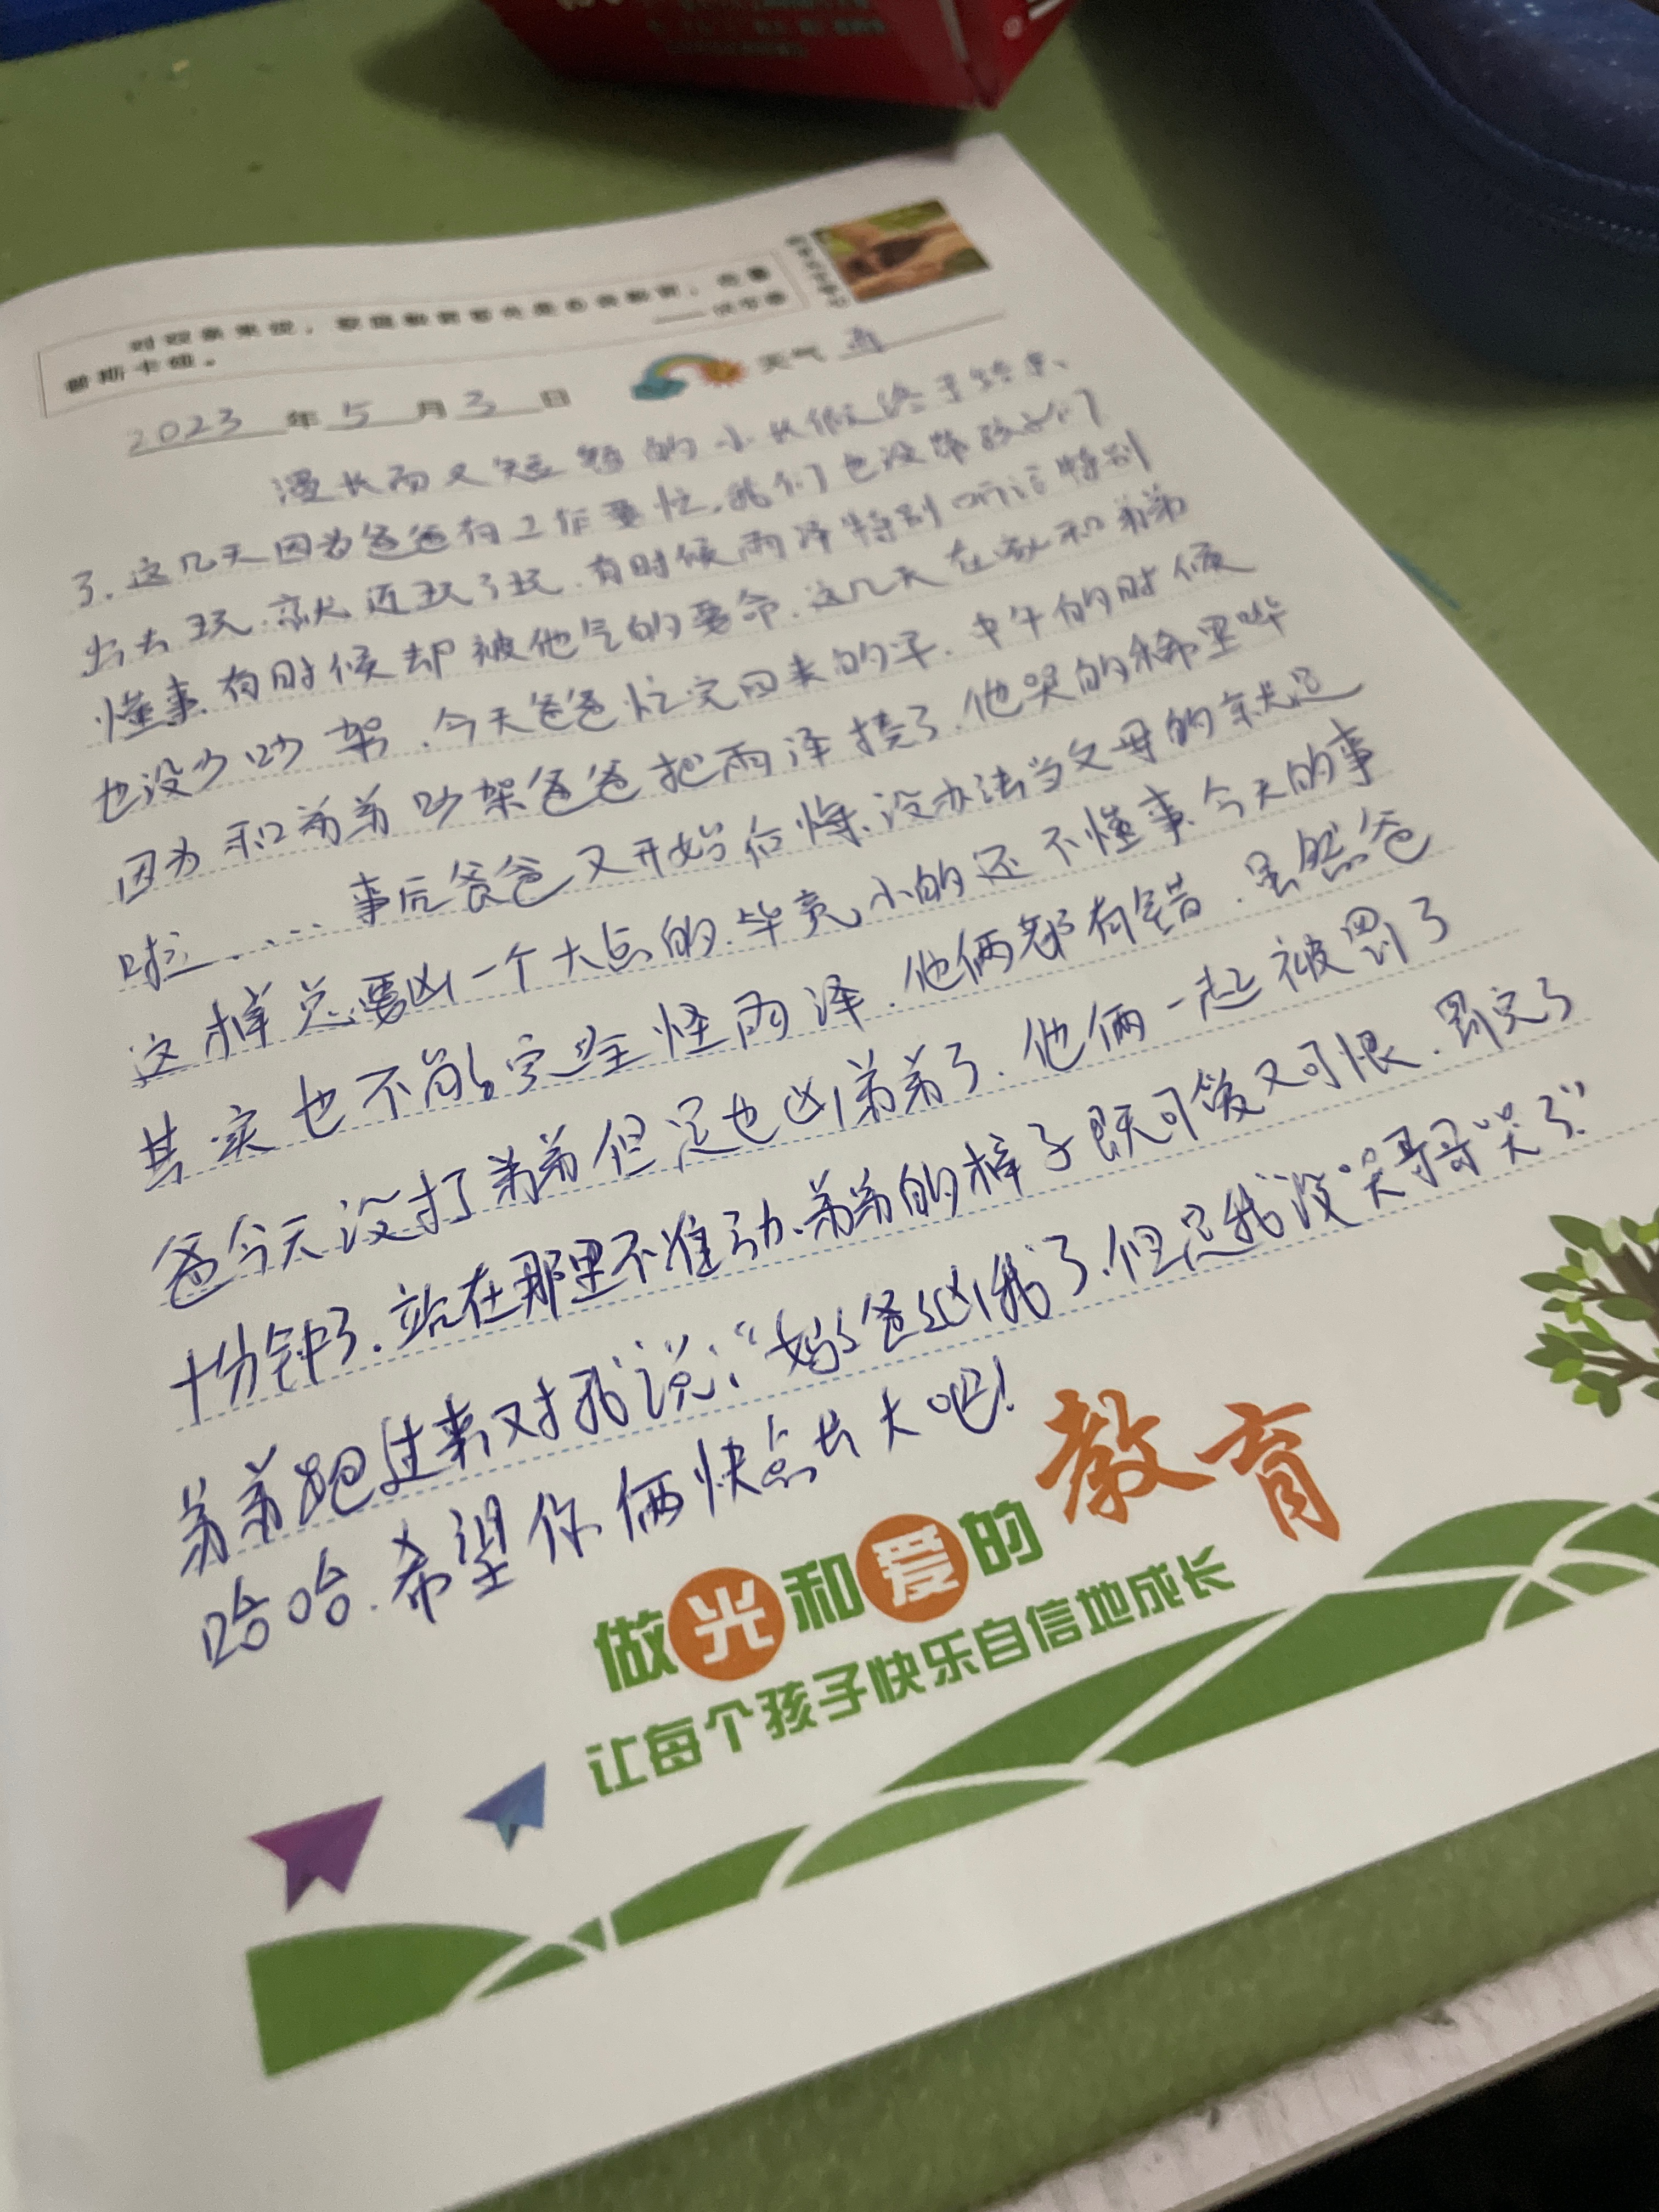 对父亲来说，家庭教育首先是自我教育。克鲁
普斯卡娅。
2023年5月3日 天气
漫长而又短暂的小长假终于结束
了.这几天因为爸爸有工作要忙,我们也没带孩子们
出去玩.就近玩了玩.有时候雨泽特别听话特别
懂事.有时候却被他气的要命.这几天在家和弟弟
也没少吵架.今天爸爸忙完回来的早.中午的时候
因为和弟弟吵架爸爸把雨泽揍了.他哭的稀里哗
啦......事后爸爸又开始后悔.没办法当父母的就是
这样总要凶一个大点的.毕竟小的还不懂事.今天的事
其实也不能完全怪雨泽.他俩都有错.虽然爸
爸今天没打弟弟但是也凶弟弟了.他俩一起被罚了
十分钟.站在那里不准动.弟弟的样子既可爱又可恨.罚完了
弟弟跑过来对我说:“妈妈爸爸凶我了.但是我没哭哥哥哭了.”
哈哈.希望你俩快点长大吧!
做光和爱的教育
让每个孩子快乐自信地成长